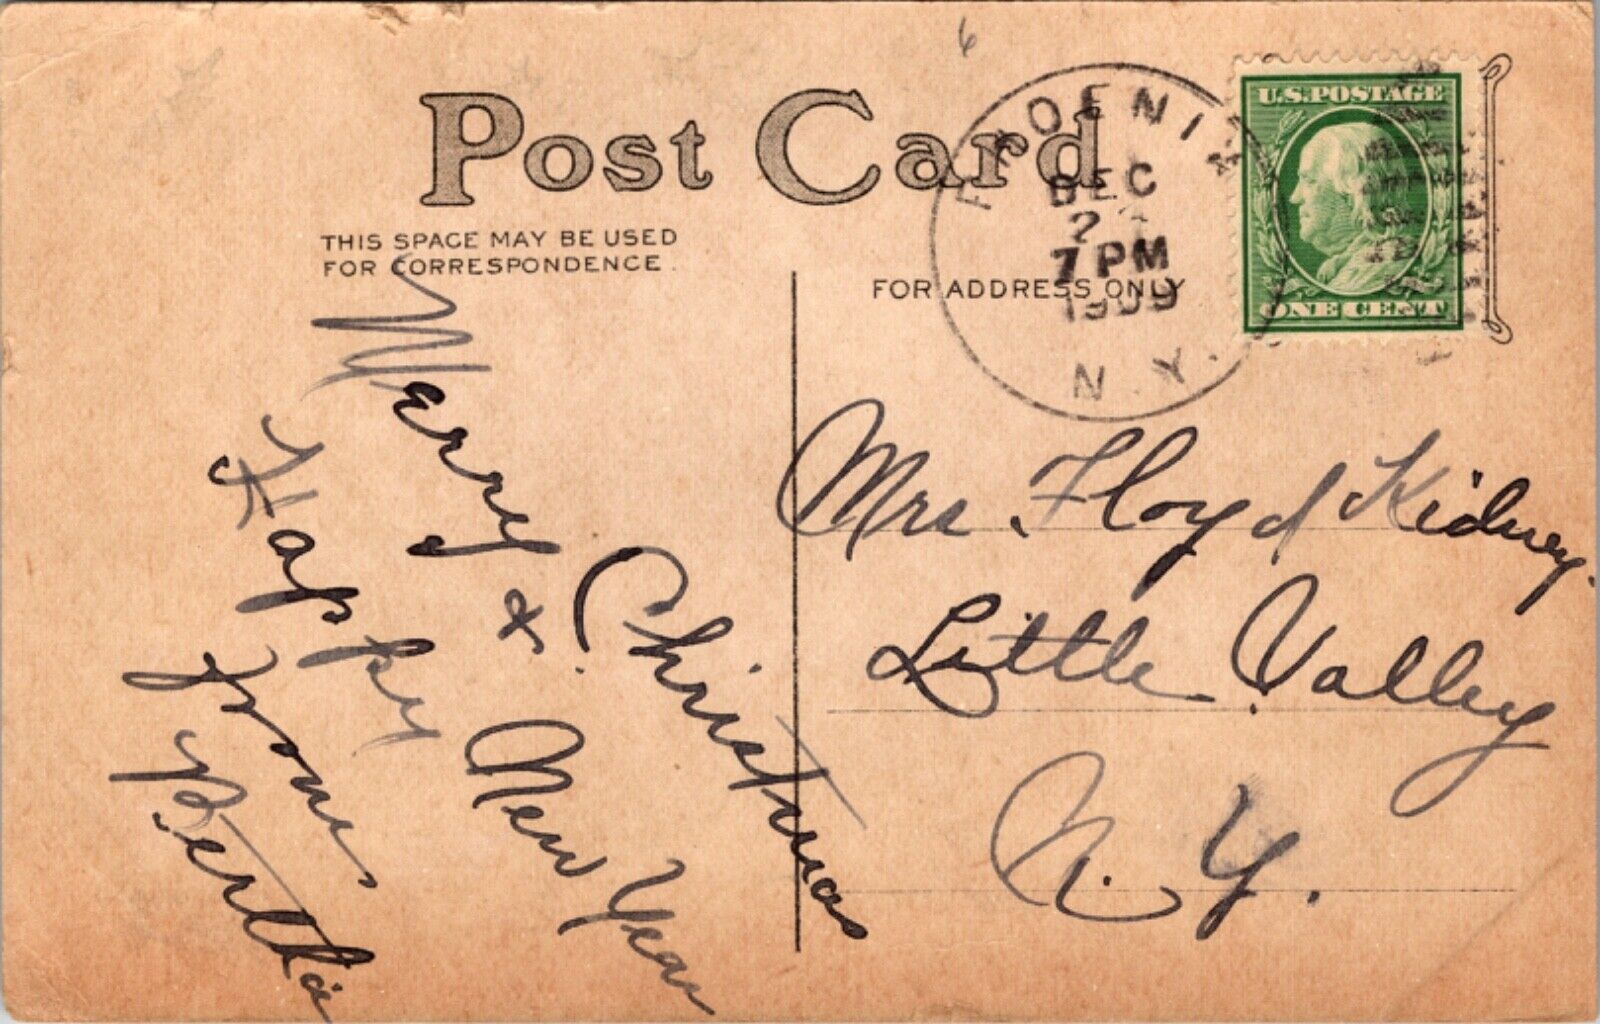 6
Post Card
THIS SPACE MAY BE USED
FOR CORRESPONDENCE.
FOR ADDRESS ONLY
PHOENIX
DEC
7 PM
1909
N.Y.
U.S. POSTAGE
ONE CENT
Merry Christmas
&
Happy New Year
from
Bertha
Mrs. Floyd Kidney.
Little Valley
N. Y.